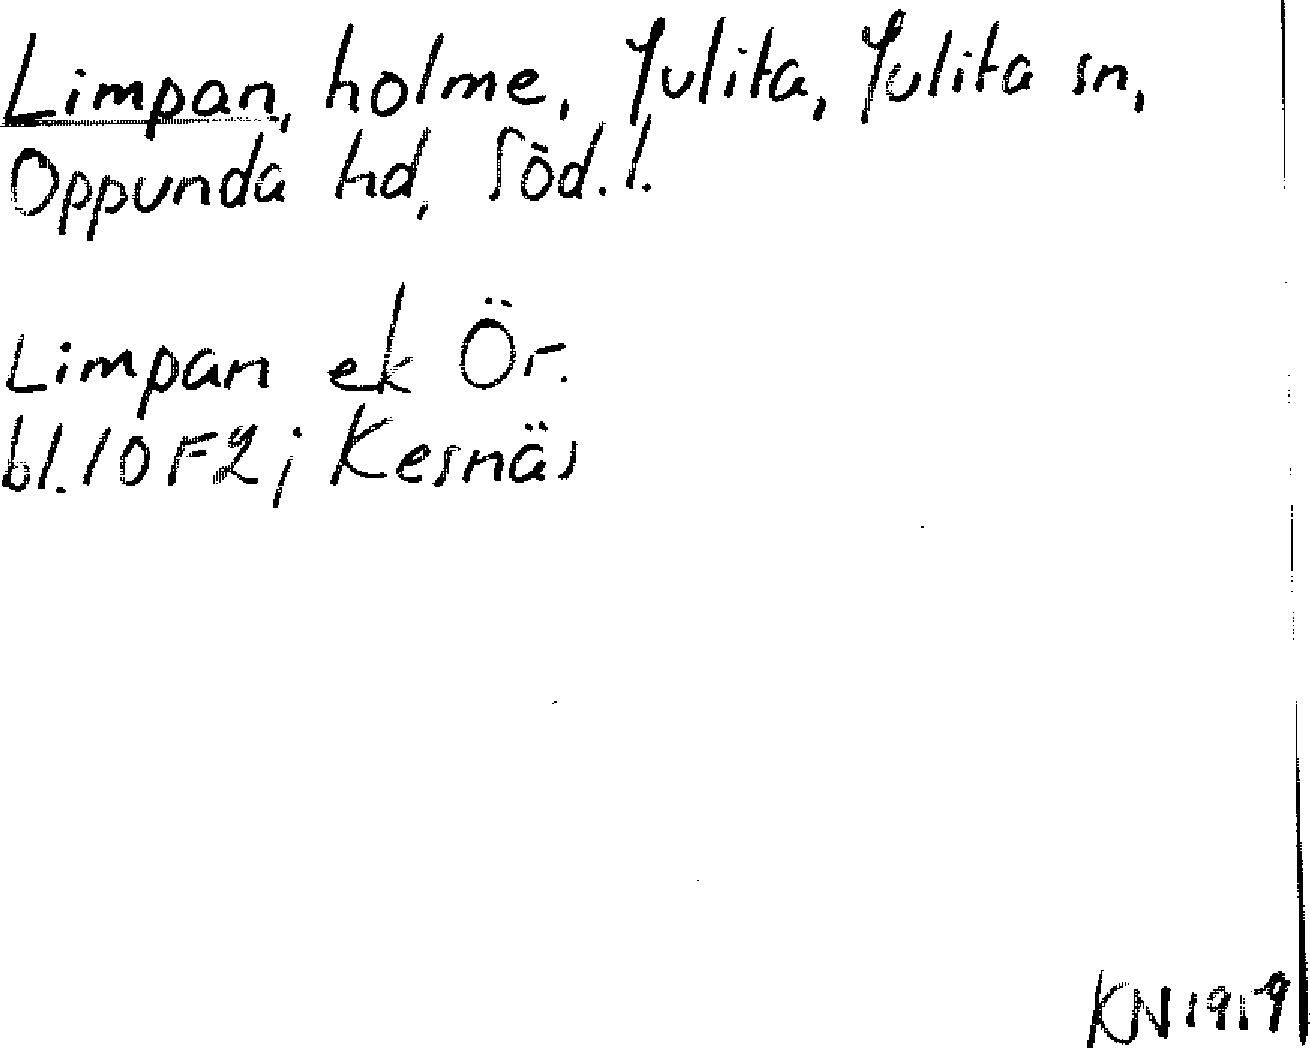 Limpan, holme, Julita, Julita sn,
Oppunda hd, Söd. l.
Limpan ek Ör.
bl. 10 F2; Kesnäs